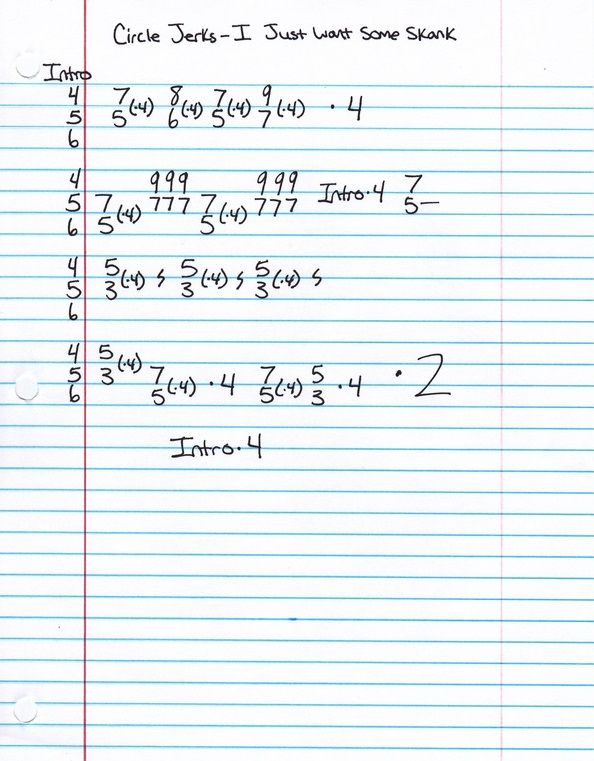 Circle Jerks - I Just Want Some Skank
Intro
4 7 8 7 9
5 5(·4) 6(·4) 5(·4) 7(·4) · 4
6
4 999 999 7
5 7 777 7 777 Intro·4 5—
6 5(·4) 5(·4)
4 5 5 5
5 3(·4) s 3(·4) s 3(·4) s
6
4 5
5 3(·4) 7 7 5 · 2
6 5(·4) · 4 5(·4) 3 · 4
Intro·4